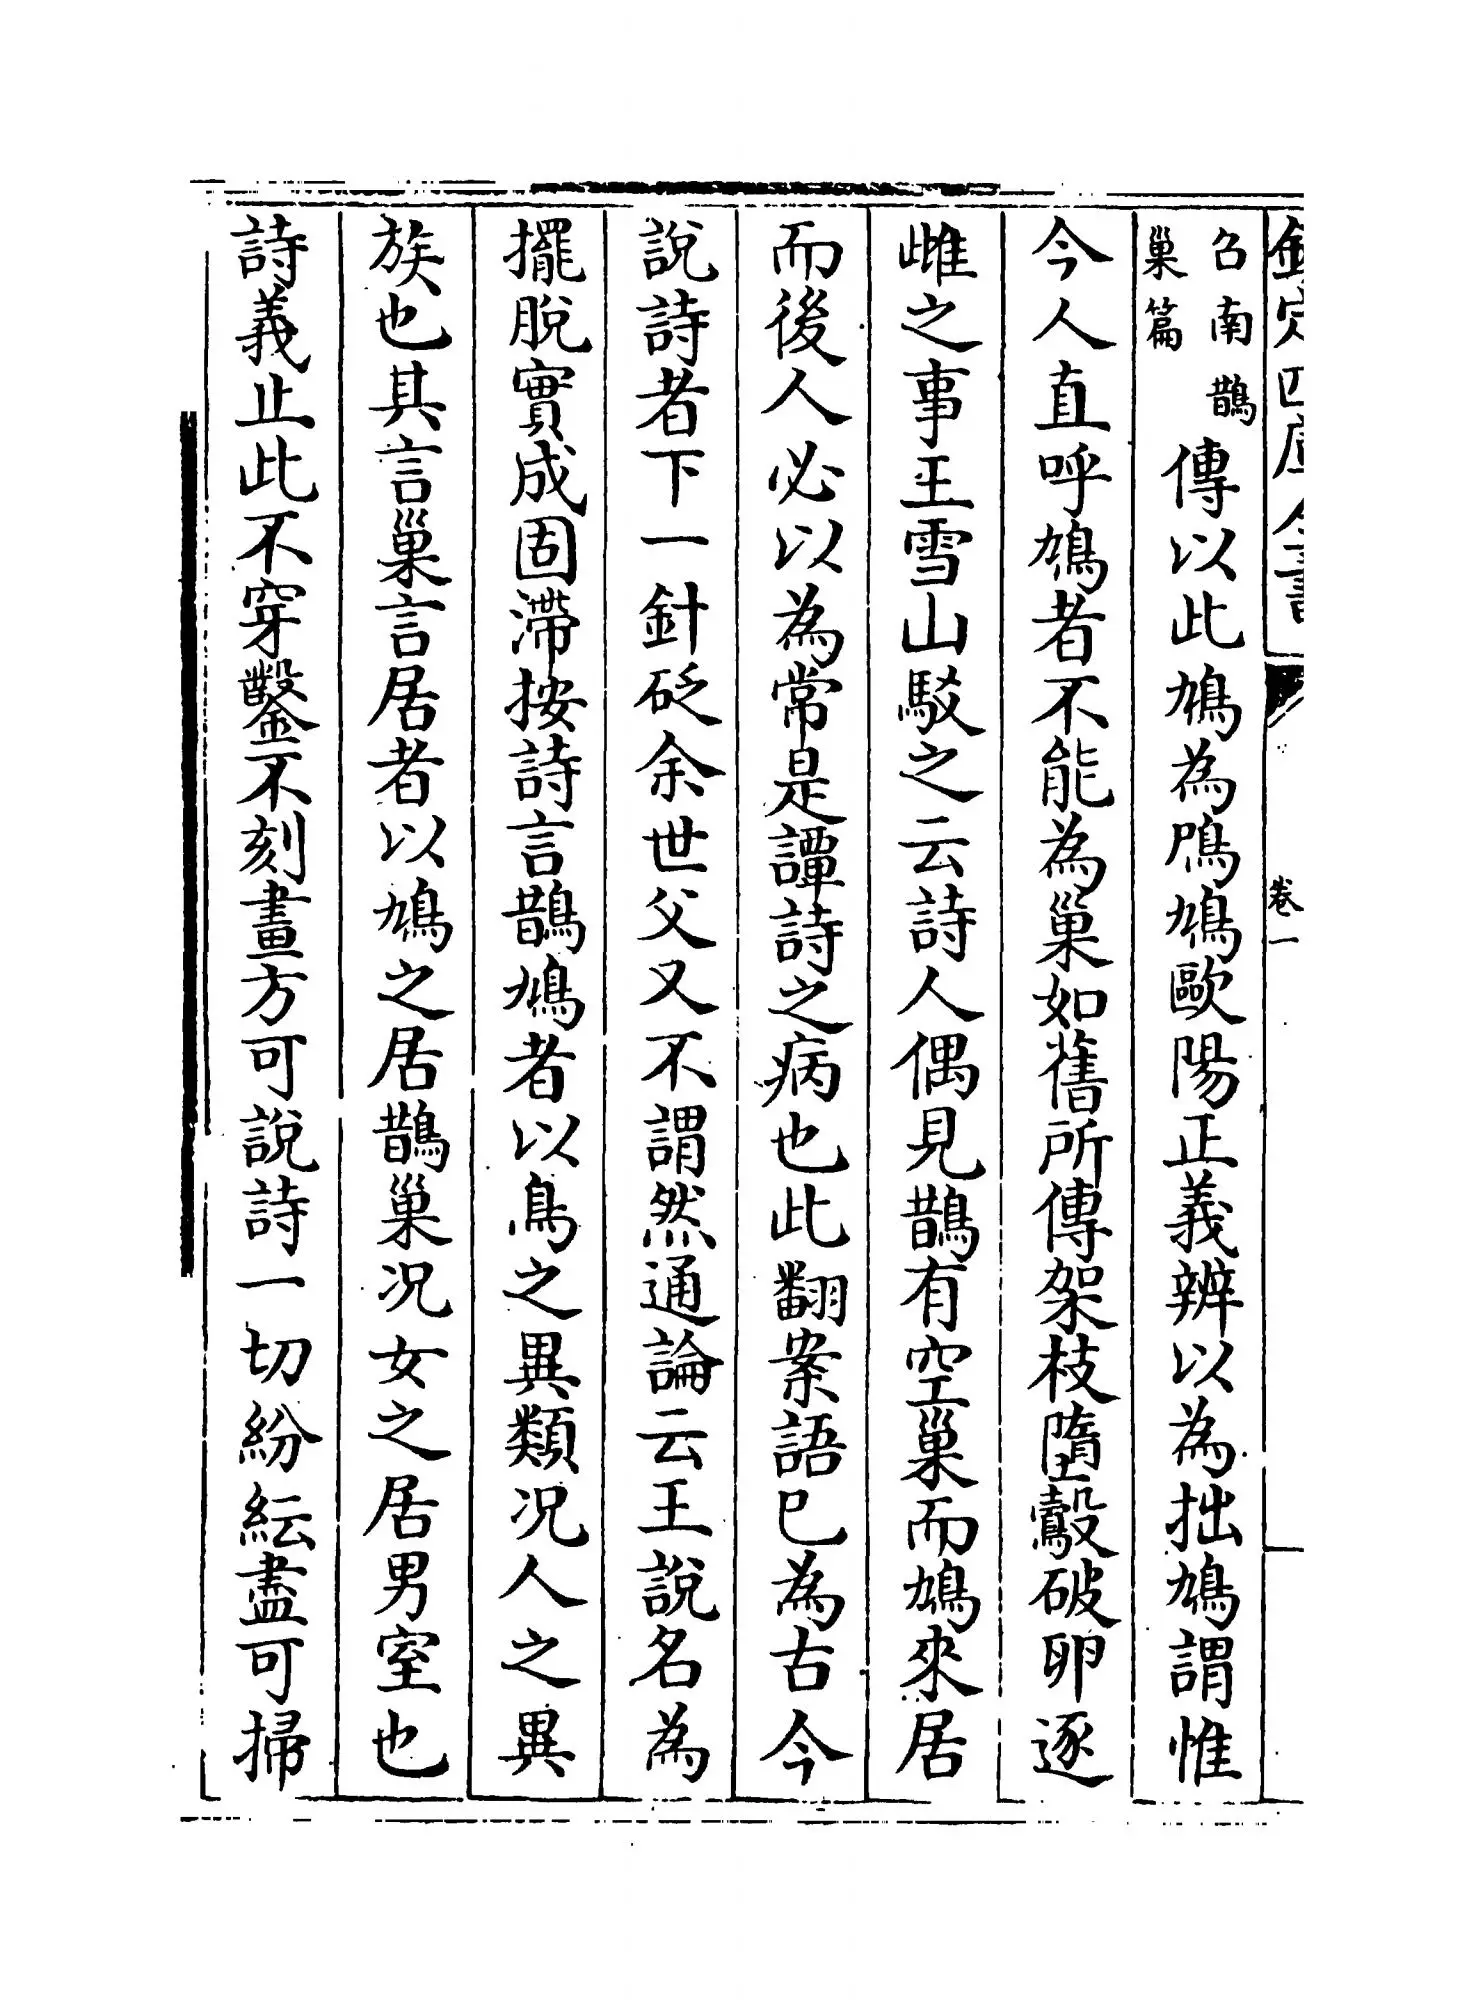 欽定四庫全書
卷一
召南鵲
巢篇
傳以此鳩為鳲鳩歐陽正義辨以為拙鳩謂惟
今人直呼鳩者不能為巢如舊所傳架枝墮鷇破卵逐
雌之事王雪山駁之云詩人偶見鵲有空巢而鳩來居
而後人必以為常是譚詩之病也此翻案語已為古今
說詩者下一針砭余世父又不謂然通論云王說名為
擺脫實成固滯按詩言鵲鳩者以鳥之異類况人之異
族也其言巢言居者以鳩之居鵲巢况女之居男室也
詩義止此不穿鑿不刻畫方可說詩一切紛紜盡可掃